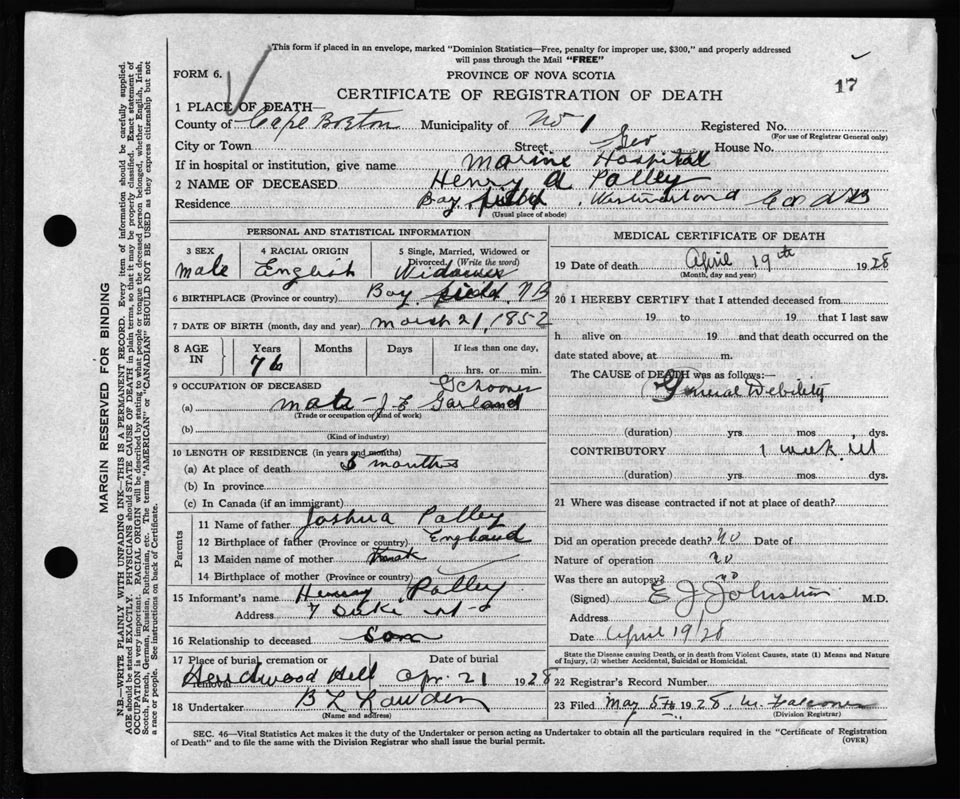 This form if placed in an envelope, marked "Dominion Statistics—Free, penalty for improper use, $300," and properly addressed
will pass through the Mail "FREE"
FORM 6.
PROVINCE OF NOVA SCOTIA
17
CERTIFICATE OF REGISTRATION OF DEATH
1 PLACE OF DEATH—
County of Cape Breton Municipality of No 1 Registered No.
(For use of Registrar General only)
City or Town Street House No.
If in hospital or institution, give name Marine Hospital
2 NAME OF DECEASED Henry A Palley
Residence Bay field, Westmorland Co N B
(Usual place of abode)
PERSONAL AND STATISTICAL INFORMATION
3 SEX 4 RACIAL ORIGIN 5 Single, Married, Widowed or
Divorced (Write the word)
Male English Widower
6 BIRTHPLACE (Province or country) Bay field, N B
7 DATE OF BIRTH (month, day and year) March 21, 1852
8 AGE IN Years Months Days If less than one day,
76 hrs. or min.
9 OCCUPATION OF DECEASED Schooner
(a) mate - J E Garland
(Trade or occupation or kind of work)
(b)
(Kind of industry)
10 LENGTH OF RESIDENCE (in years and months)
(a) At place of death months
(b) In province
(c) In Canada (if an immigrant)
Parents
11 Name of father Joshua Palley
12 Birthplace of father (Province or country) England
13 Maiden name of mother
14 Birthplace of mother (Province or country)
15 Informant's name Henry Palley
Address 7 Duke St
16 Relationship to deceased Son
17 Place of burial, cremation or removal Date of burial
Hardwood Hill Apr. 21 1928
18 Undertaker B L
(Name and address)
MEDICAL CERTIFICATE OF DEATH
19 Date of death April 19th 1928
(Month, day and year)
20 I HEREBY CERTIFY that I attended deceased from
19 to 19 that I last saw
h alive on 19 and that death occurred on the
date stated above, at m.
The CAUSE of DEATH was as follows:—
General Debility
(duration) yrs. mos. dys.
CONTRIBUTORY 1 week ill
(duration) yrs. mos. dys.
21 Where was disease contracted if not at place of death?
Did an operation precede death? No Date of
Nature of operation no
Was there an autopsy? no
(Signed) E J Johnston M.D.
Address
Date April 19/28
State the Disease causing Death, or in death from Violent Causes, state (1) Means and Nature
of Injury, (2) whether Accidental, Suicidal or Homicidal.
22 Registrar's Record Number
23 Filed May 5th 1928
(Division Registrar)
SEC. 46—Vital Statistics Act makes it the duty of the Undertaker or person acting as Undertaker to obtain all the particulars required in the "Certificate of Registration
of Death" and to file the same with the Division Registrar who shall issue the burial permit.
(OVER)
MARGIN RESERVED FOR BINDING
N.B.—WRITE PLAINLY WITH UNFADING INK—THIS IS A PERMANENT RECORD. Every item of information should be carefully supplied.
AGE should be stated EXACTLY. PHYSICIANS should STATE CAUSE OF DEATH in plain terms, so that it may be properly classified. Exact statement of
OCCUPATION is very important. RACIAL ORIGIN will be described by stating to what people or tongue the deceased person belonged, whether English, Irish,
Scotch, French, German, Russian, Ruthenian, etc. The terms "AMERICAN" or "CANADIAN" SHOULD NOT BE USED as they express citizenship but not
a race or people. See instructions on back of Certificate.